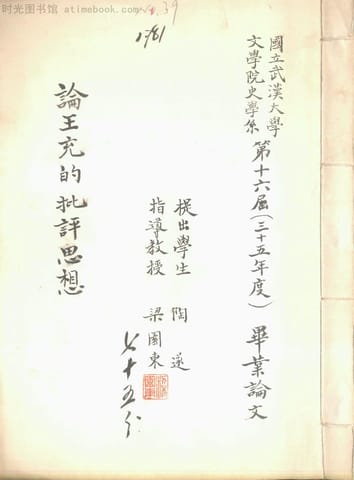 时光图书馆 atimebook.com
39
1781
國立武漢大學
文學院史學系
第十六屆(三十五年度)畢業論文
提出學生 陶遂
指導教授 梁園東
七十五分
論王充的批評思想